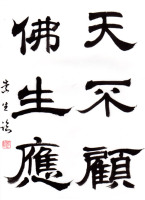 天不顧
佛生應